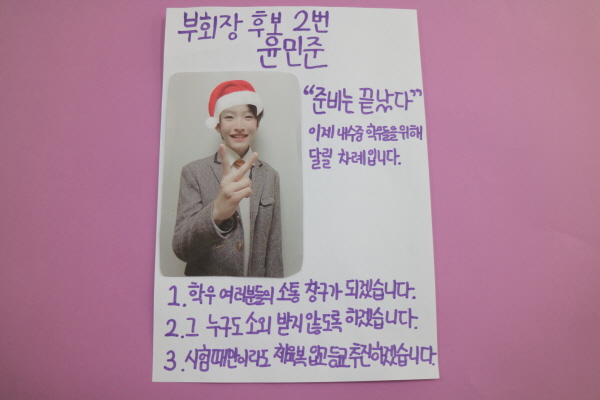 부회장 후보 2번
윤민준
“준비는 끝났다”
이제 내수중 학우들을 위해
달릴 차례입니다.
1. 학우 여러분들의 소통 창구가 되겠습니다.
2. 그 누구도 소외 받지 않도록 하겠습니다.
3. 시험때만이라도 체육복 입고 등교 추진하겠습니다.